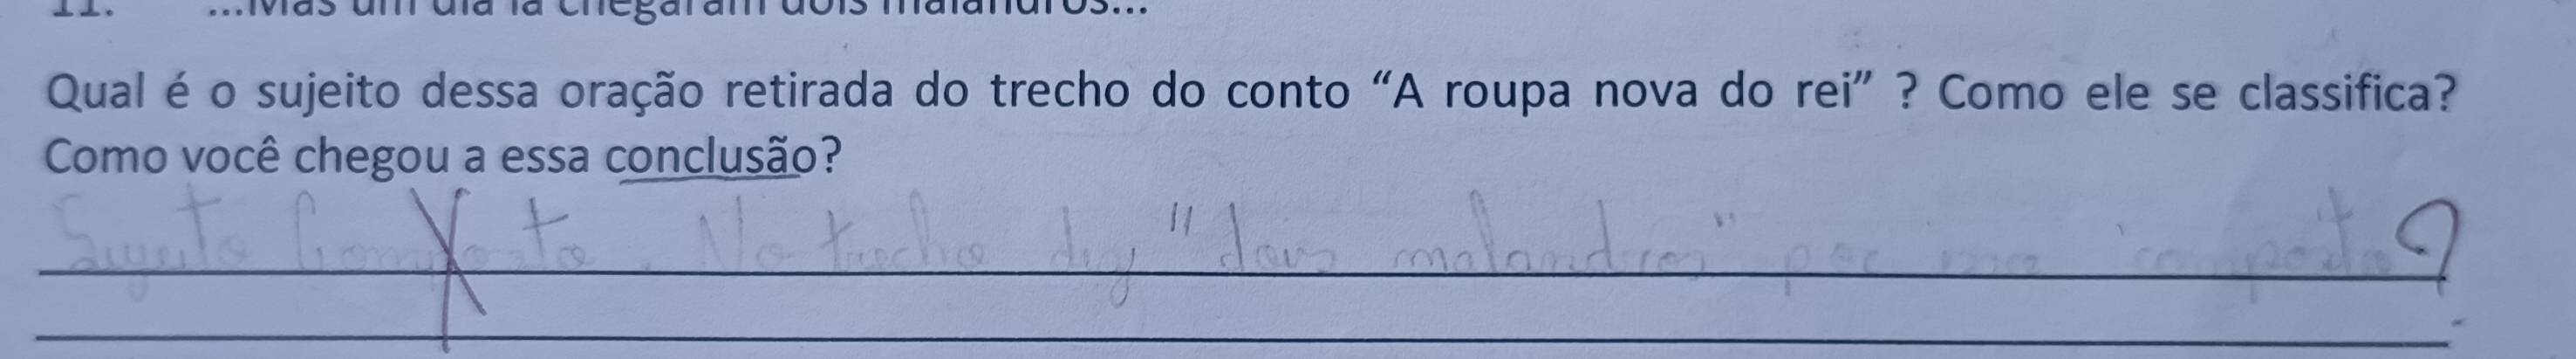 11. ...Mas um dia lá chegaram dois malandros...
Qual é o sujeito dessa oração retirada do trecho do conto “A roupa nova do rei” ? Como ele se classifica?
Como você chegou a essa conclusão?
Sujeito Composto. No trecho diz "dois malandros" por isso composto